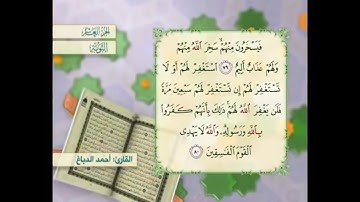 الجزء العاشر
التوبة
فَيَسْخَرُونَ مِنْهُمْ سَخِرَ اللَّهُ مِنْهُمْ
وَلَهُمْ عَذَابٌ أَلِيمٌ ٧٩ اسْتَغْفِرْ لَهُمْ أَوْ لَا
تَسْتَغْفِرْ لَهُمْ إِن تَسْتَغْفِرْ لَهُمْ سَبْعِينَ مَرَّةً
فَلَن يَغْفِرَ اللَّهُ لَهُمْ ذَٰلِكَ بِأَنَّهُمْ كَفَرُوا
بِاللَّهِ وَرَسُولِهِ وَاللَّهُ لَا يَهْدِي
الْقَوْمَ الْفَاسِقِينَ ٨٠
القارئ: أحمد الدباغ